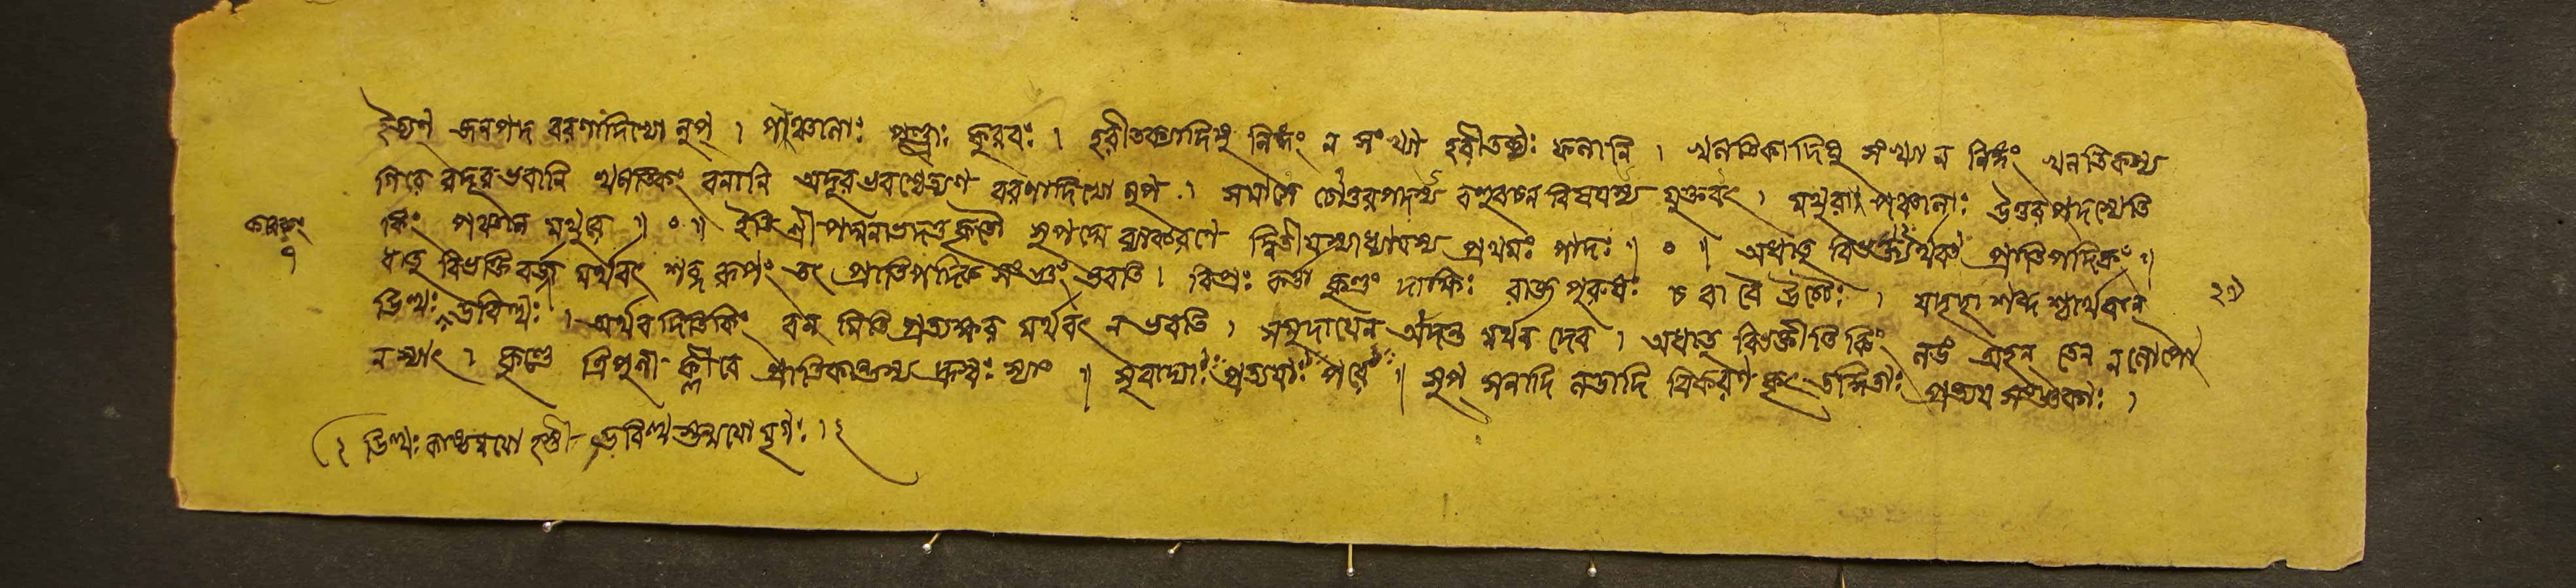 জনপদ বরণাদিভ্যো লুপ্ । পাঞ্চালাঃ পুণ্ড্রাঃ কুরবঃ । হরীতক্যাদিষু লিঙ্গং ন সংখ্যা হরীতক্যঃ ফলানি । খলতিকাদিষু সংখ্যা ন লিঙ্গং খলতিকস্য
গিরে রদূরভবানি খলতিকং বনানি অদূরভবশ্চেত্যণ বরণাদিভ্যো লুপ্ । সমাসে চোত্তরপদস্য বহুবচন বিষয়স্য যুক্তবৎ । মথুরা পঞ্চালাঃ উত্তরপদস্যেতি
কিং পঞ্চাল মথুরে ॥ ০ ॥ ইতি শ্রীপদ্মনাভদত্তকৃতৌ সুপদ্মে ব্যাকরণে দ্বিতীয়স্যাধ্যায়স্য প্রথমঃ পাদঃ ॥ ০ ॥ অধাতু বিভক্ত্যর্থবৎ প্রাতিপদিকং ॥
ধাতু বিভক্তি বর্জ মর্থবৎ শব্দ রূপং তৎ প্রাতিপদিক সংজ্ঞং ভবতি । বিপ্রঃ কর্ত্তা কুণ্ডং দাক্ষিঃ রাজপুরুষঃ চ বা বৈ উচ্চৈঃ । যদৃচ্ছা শব্দ শ্চার্থবান্
ডিত্থঃ ডবিত্থঃ । অর্থবদিতি কিং বন মিতি প্রত্যক্ষর মর্থবৎ ন ভবতি । সমুদায়েন তদন্ত মর্থব দেব । অধাতু বিভক্তীতি কিং নত্তং অহন্ তেন নলোপো
ন স্যাৎ । কুণ্ডে ত্রিপুণী ক্লীবে প্রাতিকান্তস্য হ্রস্বঃ স্যাৎ ॥ সুবাদ্যাঃ প্রত্যয়াঃ পরে ॥ সুপ্ সনাদি নতাদি বিকরণ কৃৎ তদ্ধিতাঃ প্রত্যয় সংজ্ঞকাঃ ।
ডিত্থঃ কাষ্ঠময়ো হস্তী ডবিত্থ স্তন্ময়ো মৃগঃ । ২
কারকং
১
২৩